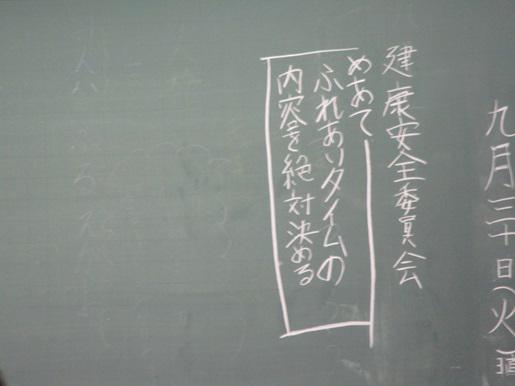 九月三十日(火)
建康安全委員会
めあて
ふれあいタイムの
内容を絶対決める